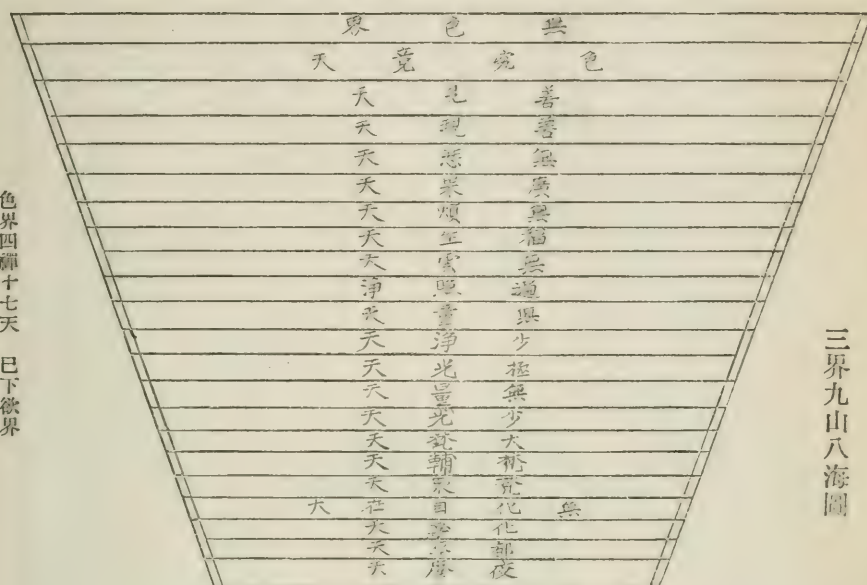 三界九山八海圖
無色界
色究竟天
善見天
善現天
無天
廣果天
無煩天
福生天
無雲天
淨
無量天
少淨天
極光天
無量天
少光天
大梵天
梵輔天
梵衆天
無化自在大
化天
都天
夜摩天
色界四禪十七天　巳下欲界